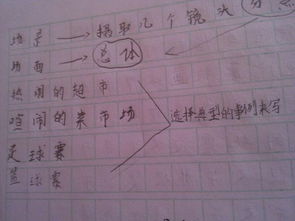 场景 → 撷取几个镜头
场面 → 总体
热闹的超市
喧闹的菜市场
选择典型的事例来写
足球赛
篮球赛